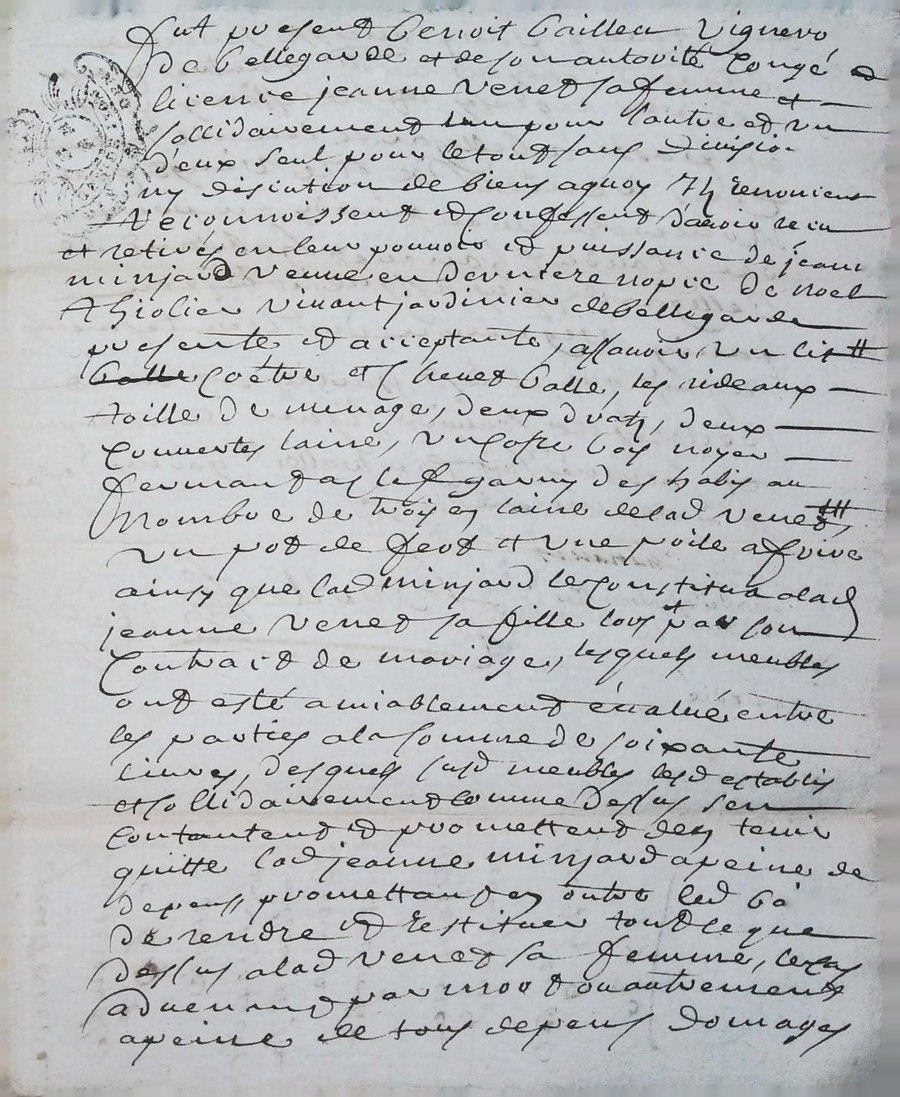 fut present benoit bailleu vignero
de bellegarde et de son autorité congé et
licence jeanne venet sa femme et
sollidairement lun pour lautre et un
d'eux seul pour le tout sans division
ny discution de biens a quoy ils renoncent
reconnoissent et confessent davoir recu
et retirés en leur pouvoir et puissance de jeanne
minjard veuve en derniere nopce de noel
thiolier vivant jardinier de bellegarde
presente et acceptante, assavoir un lit
coëtre et chevet balle, les rideaux
toille de menage, deux drats, deux
couvertes laine, un cofre bois noyer
fermant a clef garny des habis au
nombre de trois en laine de lad venet,
un pot de fert et une poile a frire
ainsy que lad minjard le constitua a lad
jeanne venet sa fille lors par son
contract de mariage, lesquels meubles
ont esté amiablement évalué entre
les parties a la somme de soixante
livres, desquels susd meubles lesd establis
et sollidairement comme dessus sen
contantent et promettent den tenir
quitte lad jeanne minjard a peine de
depens, promettant en outre led ba
de rendre et restituer tout ce que
dessus a lad venet sa femme, le cas
advenant par mort ou autrement
a peine de tous depens domages